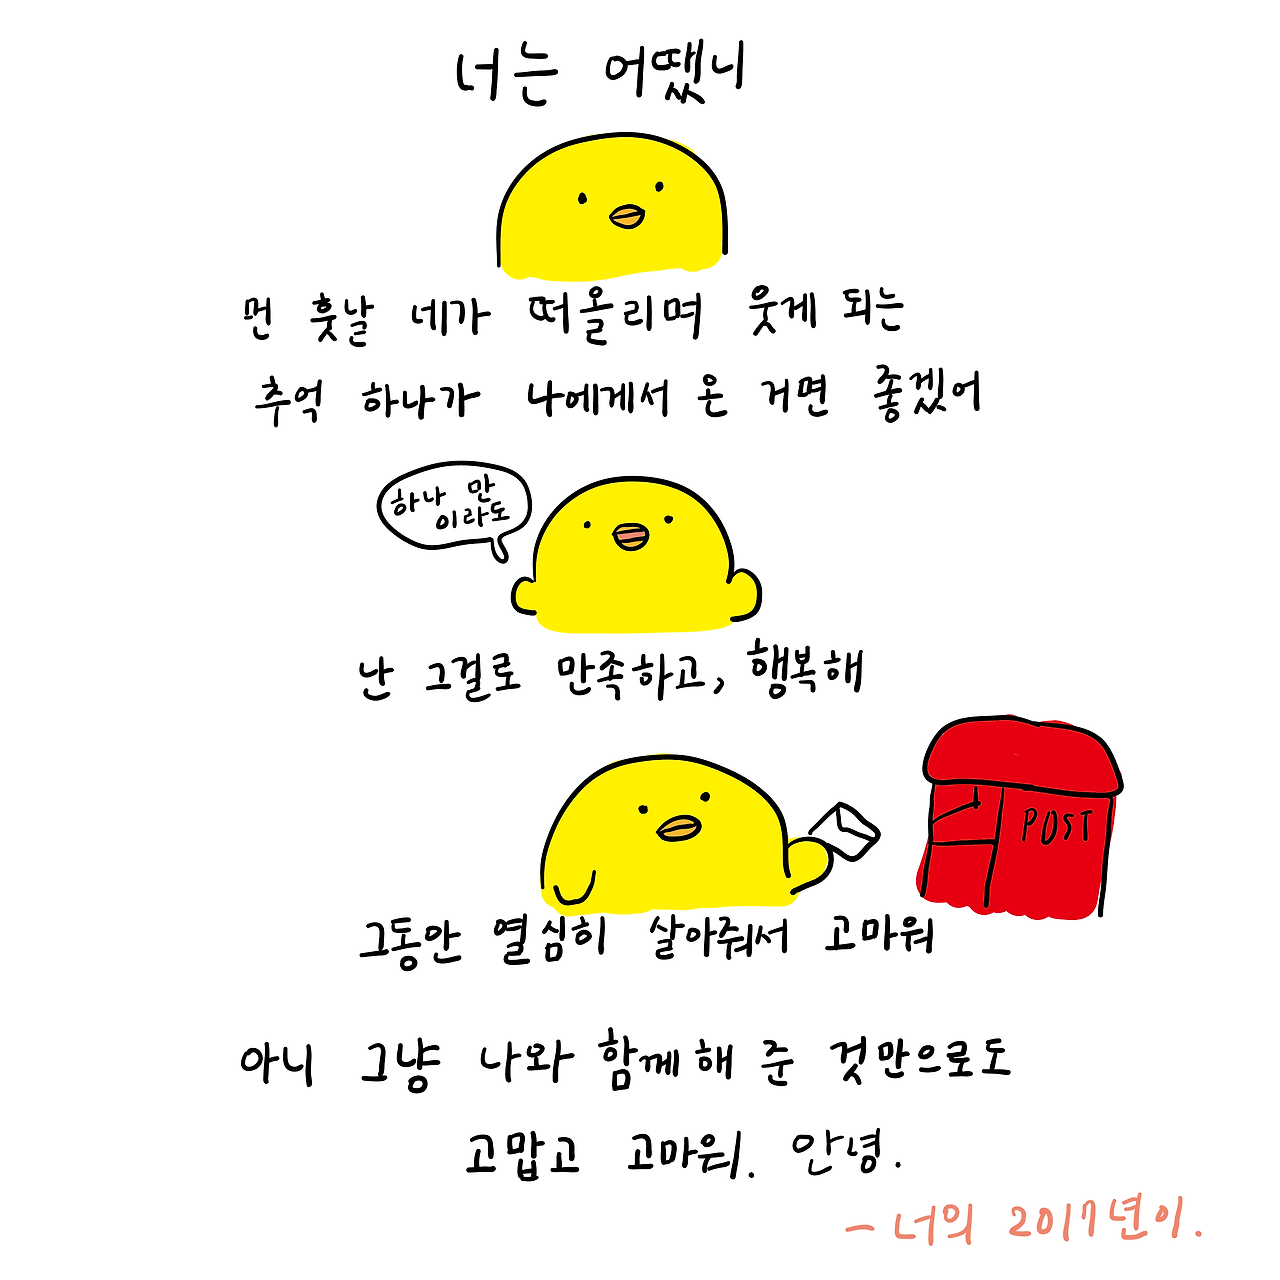 너는 어땠니
먼 훗날 네가 떠올리며 웃게 되는
추억 하나가 나에게서 온 거면 좋겠어
하나 만
이라도
난 그걸로 만족하고, 행복해
POST
그동안 열심히 살아줘서 고마워
아니 그냥 나와 함께해 준 것만으로도
고맙고 고마워. 안녕.
- 너의 2017년이.